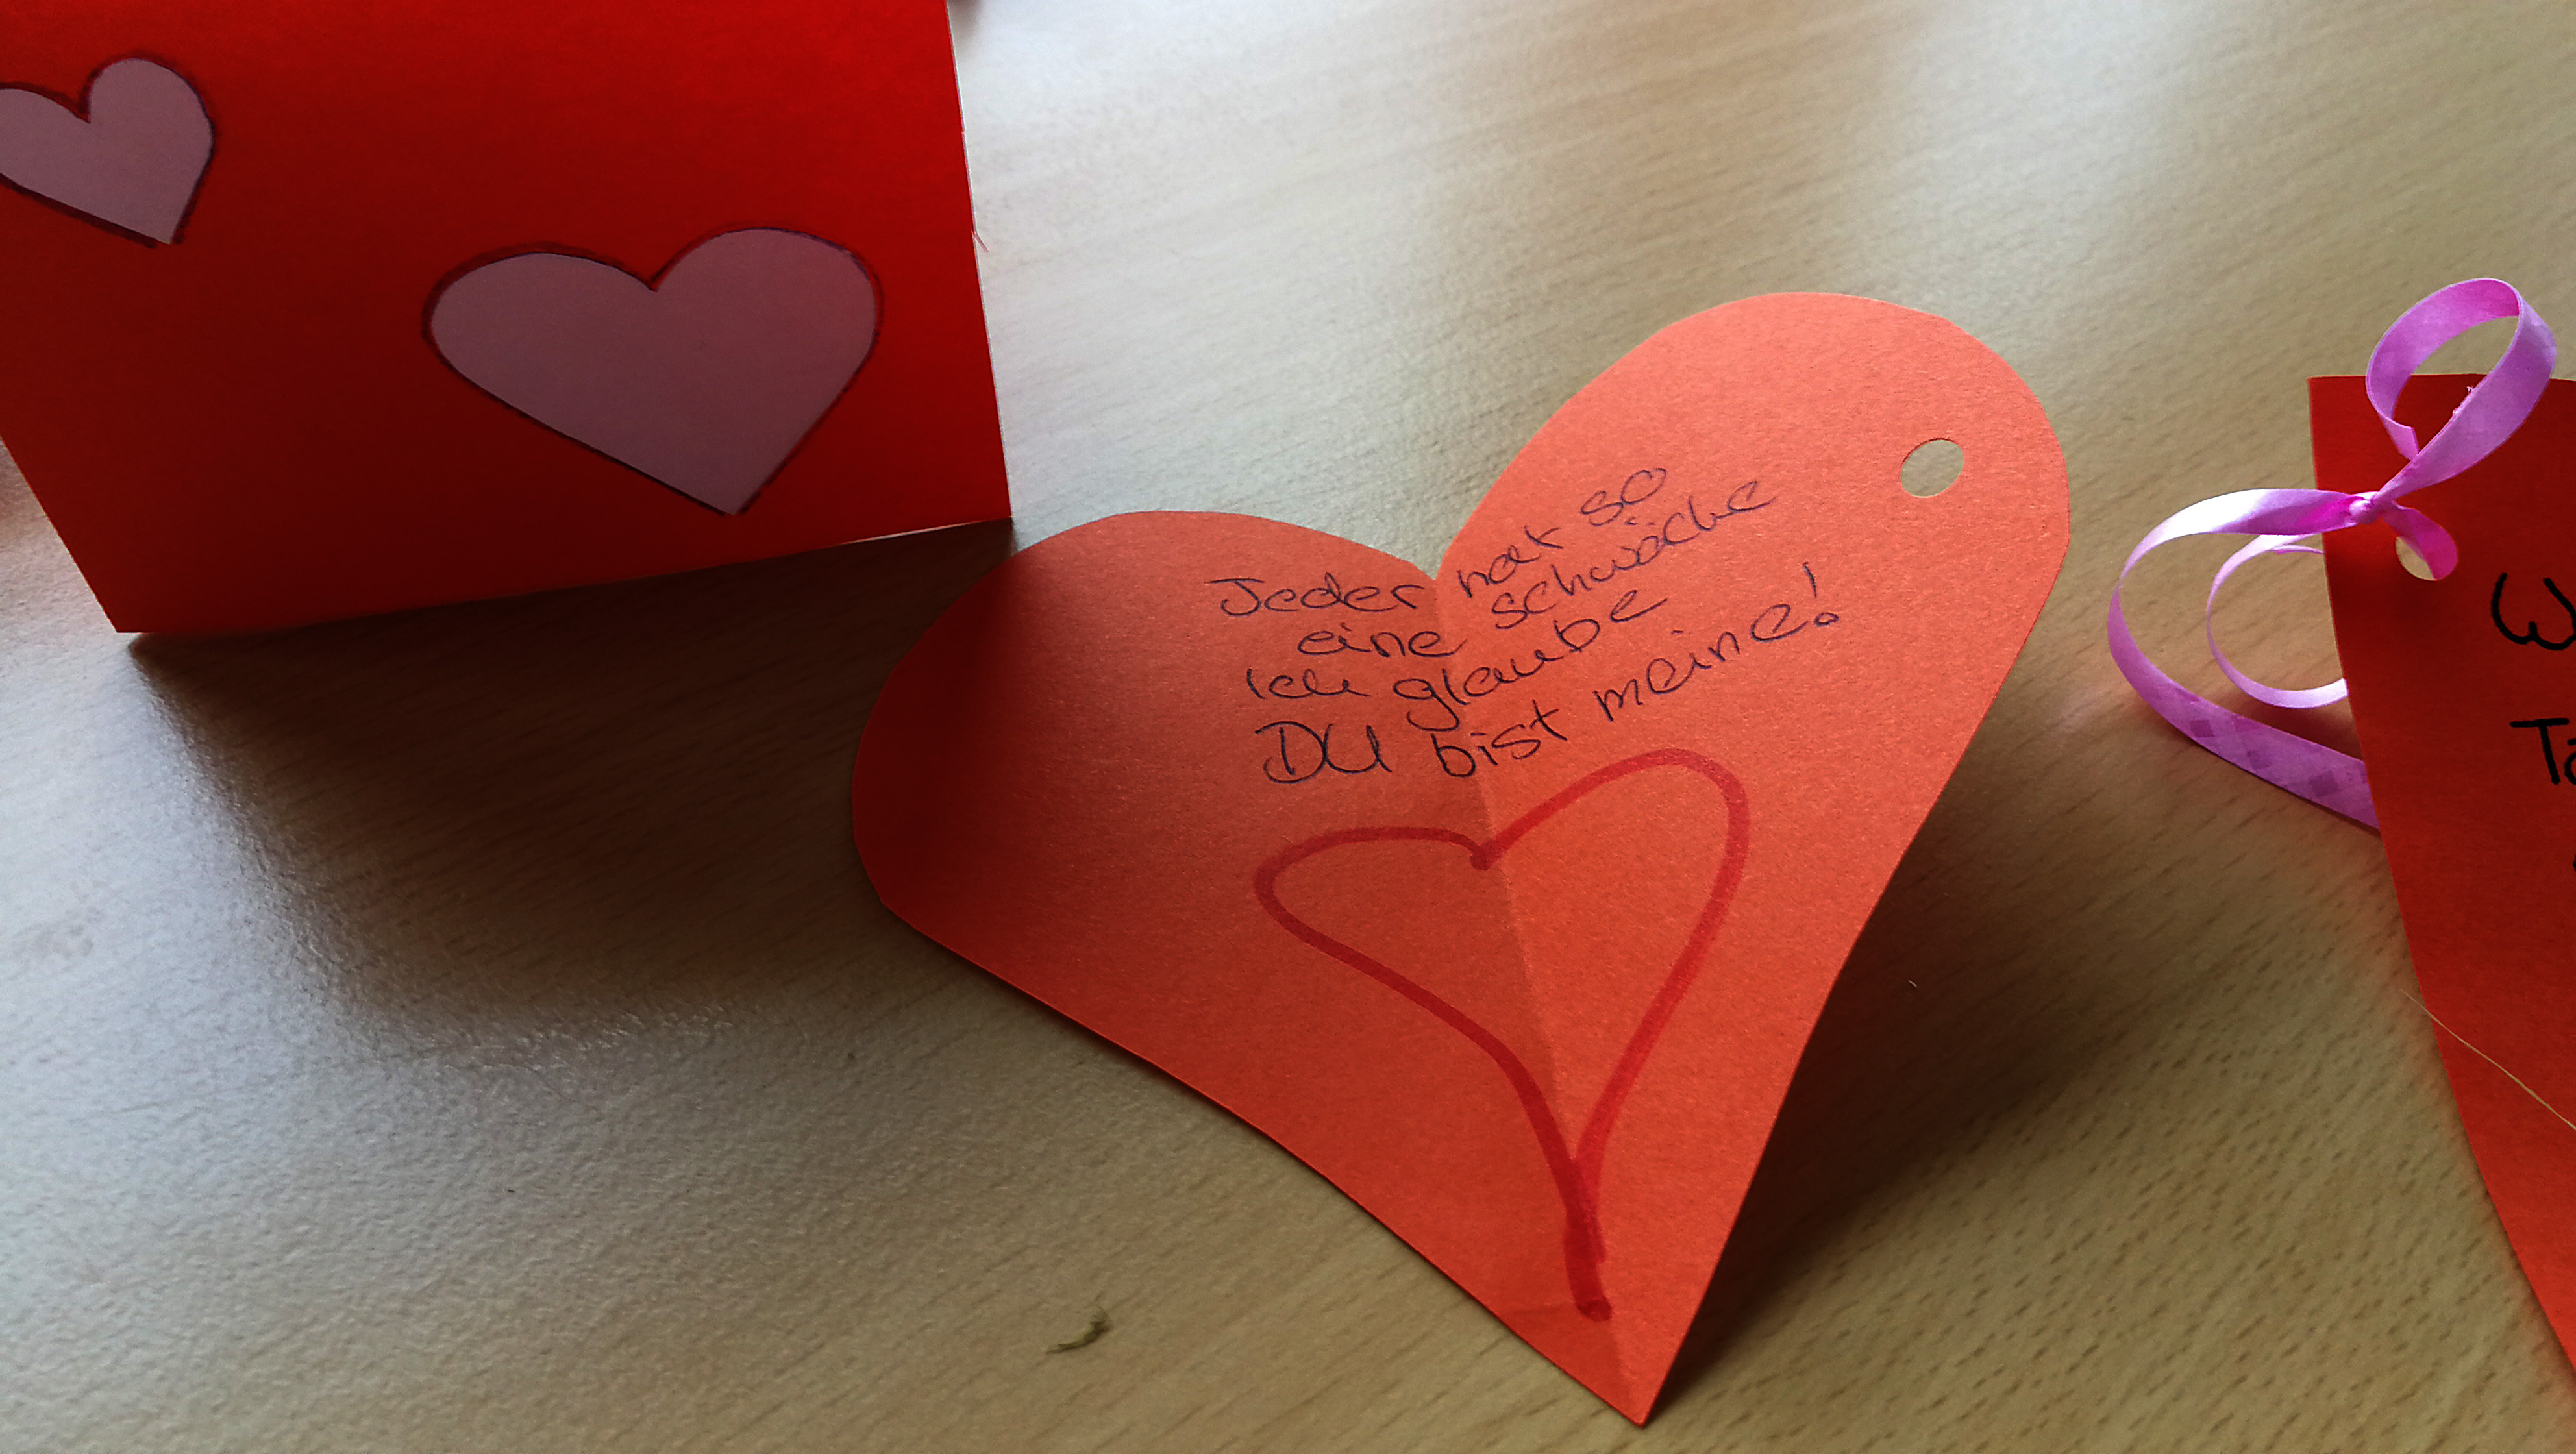 Jeder hat so
eine schwäche
Ich glaube
DU bist meine!